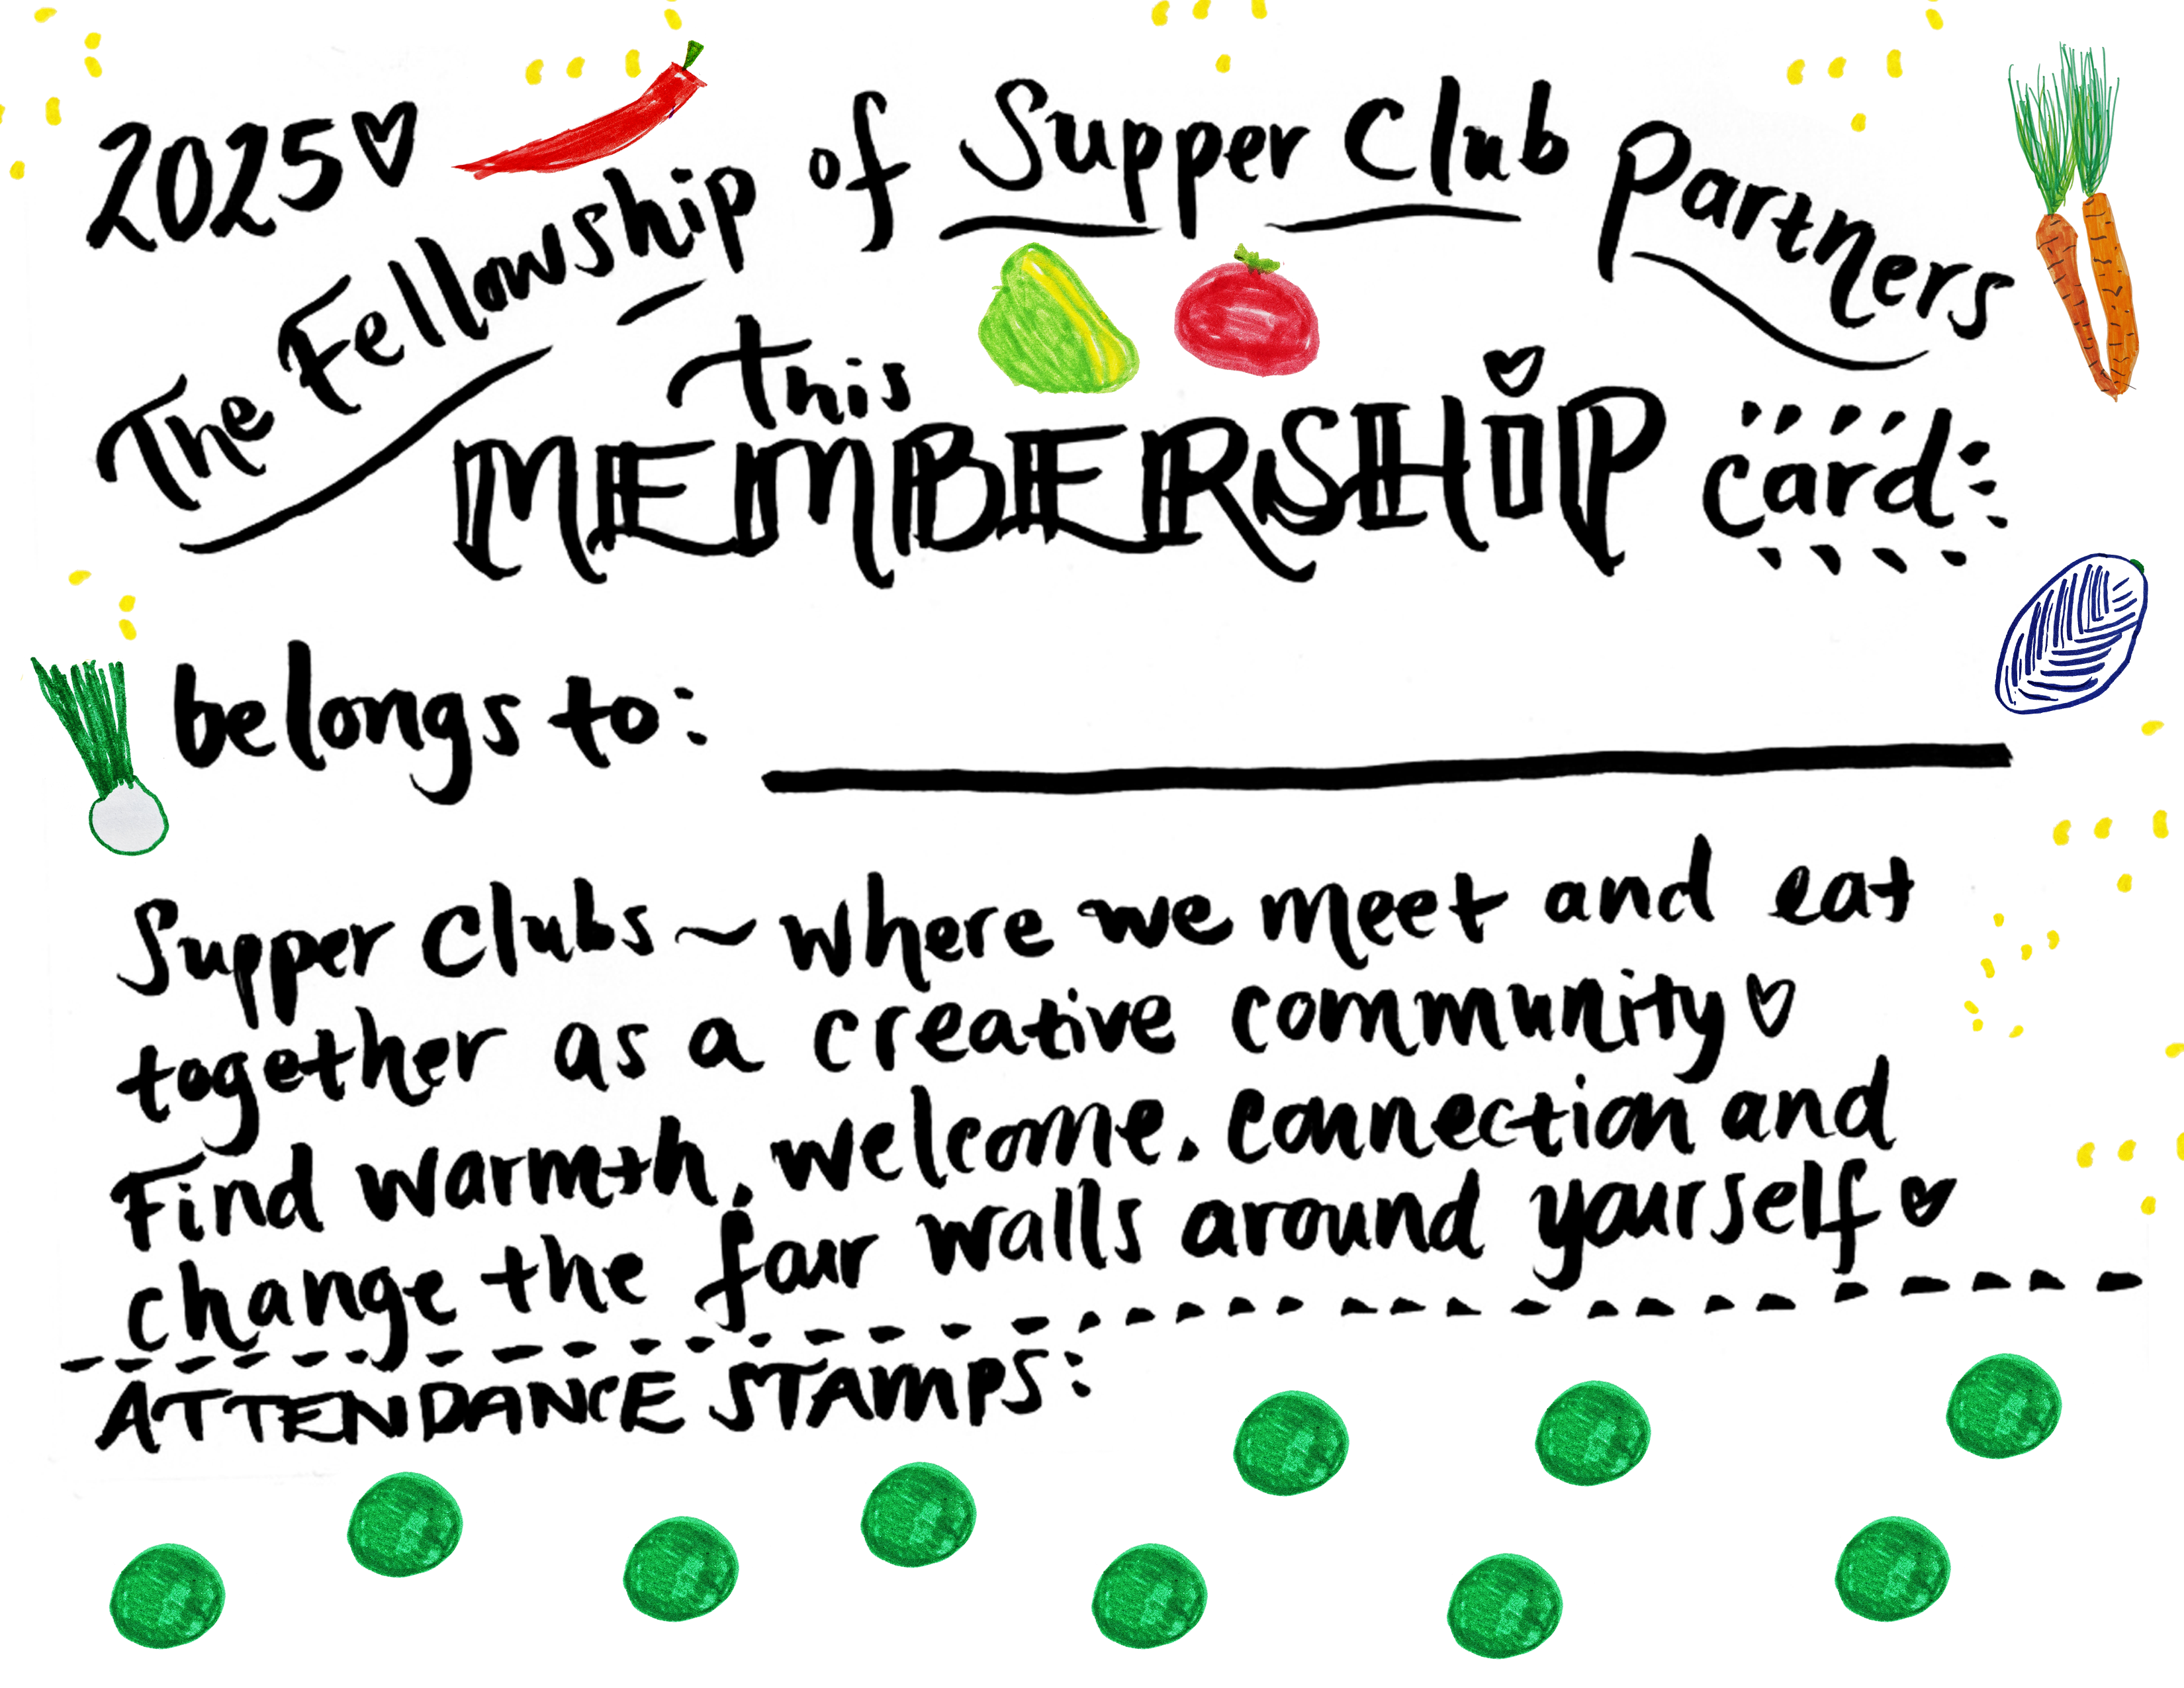 2025♡
The Fellowship of Supper Club Partners
this
MEMBERSHIP card:
belongs to:
Supper Clubs ~ where we meet and eat
together as a creative community♡
Find warmth, welcome, connection and
change the four walls around yourself♡
ATTENDANCE STAMPS: